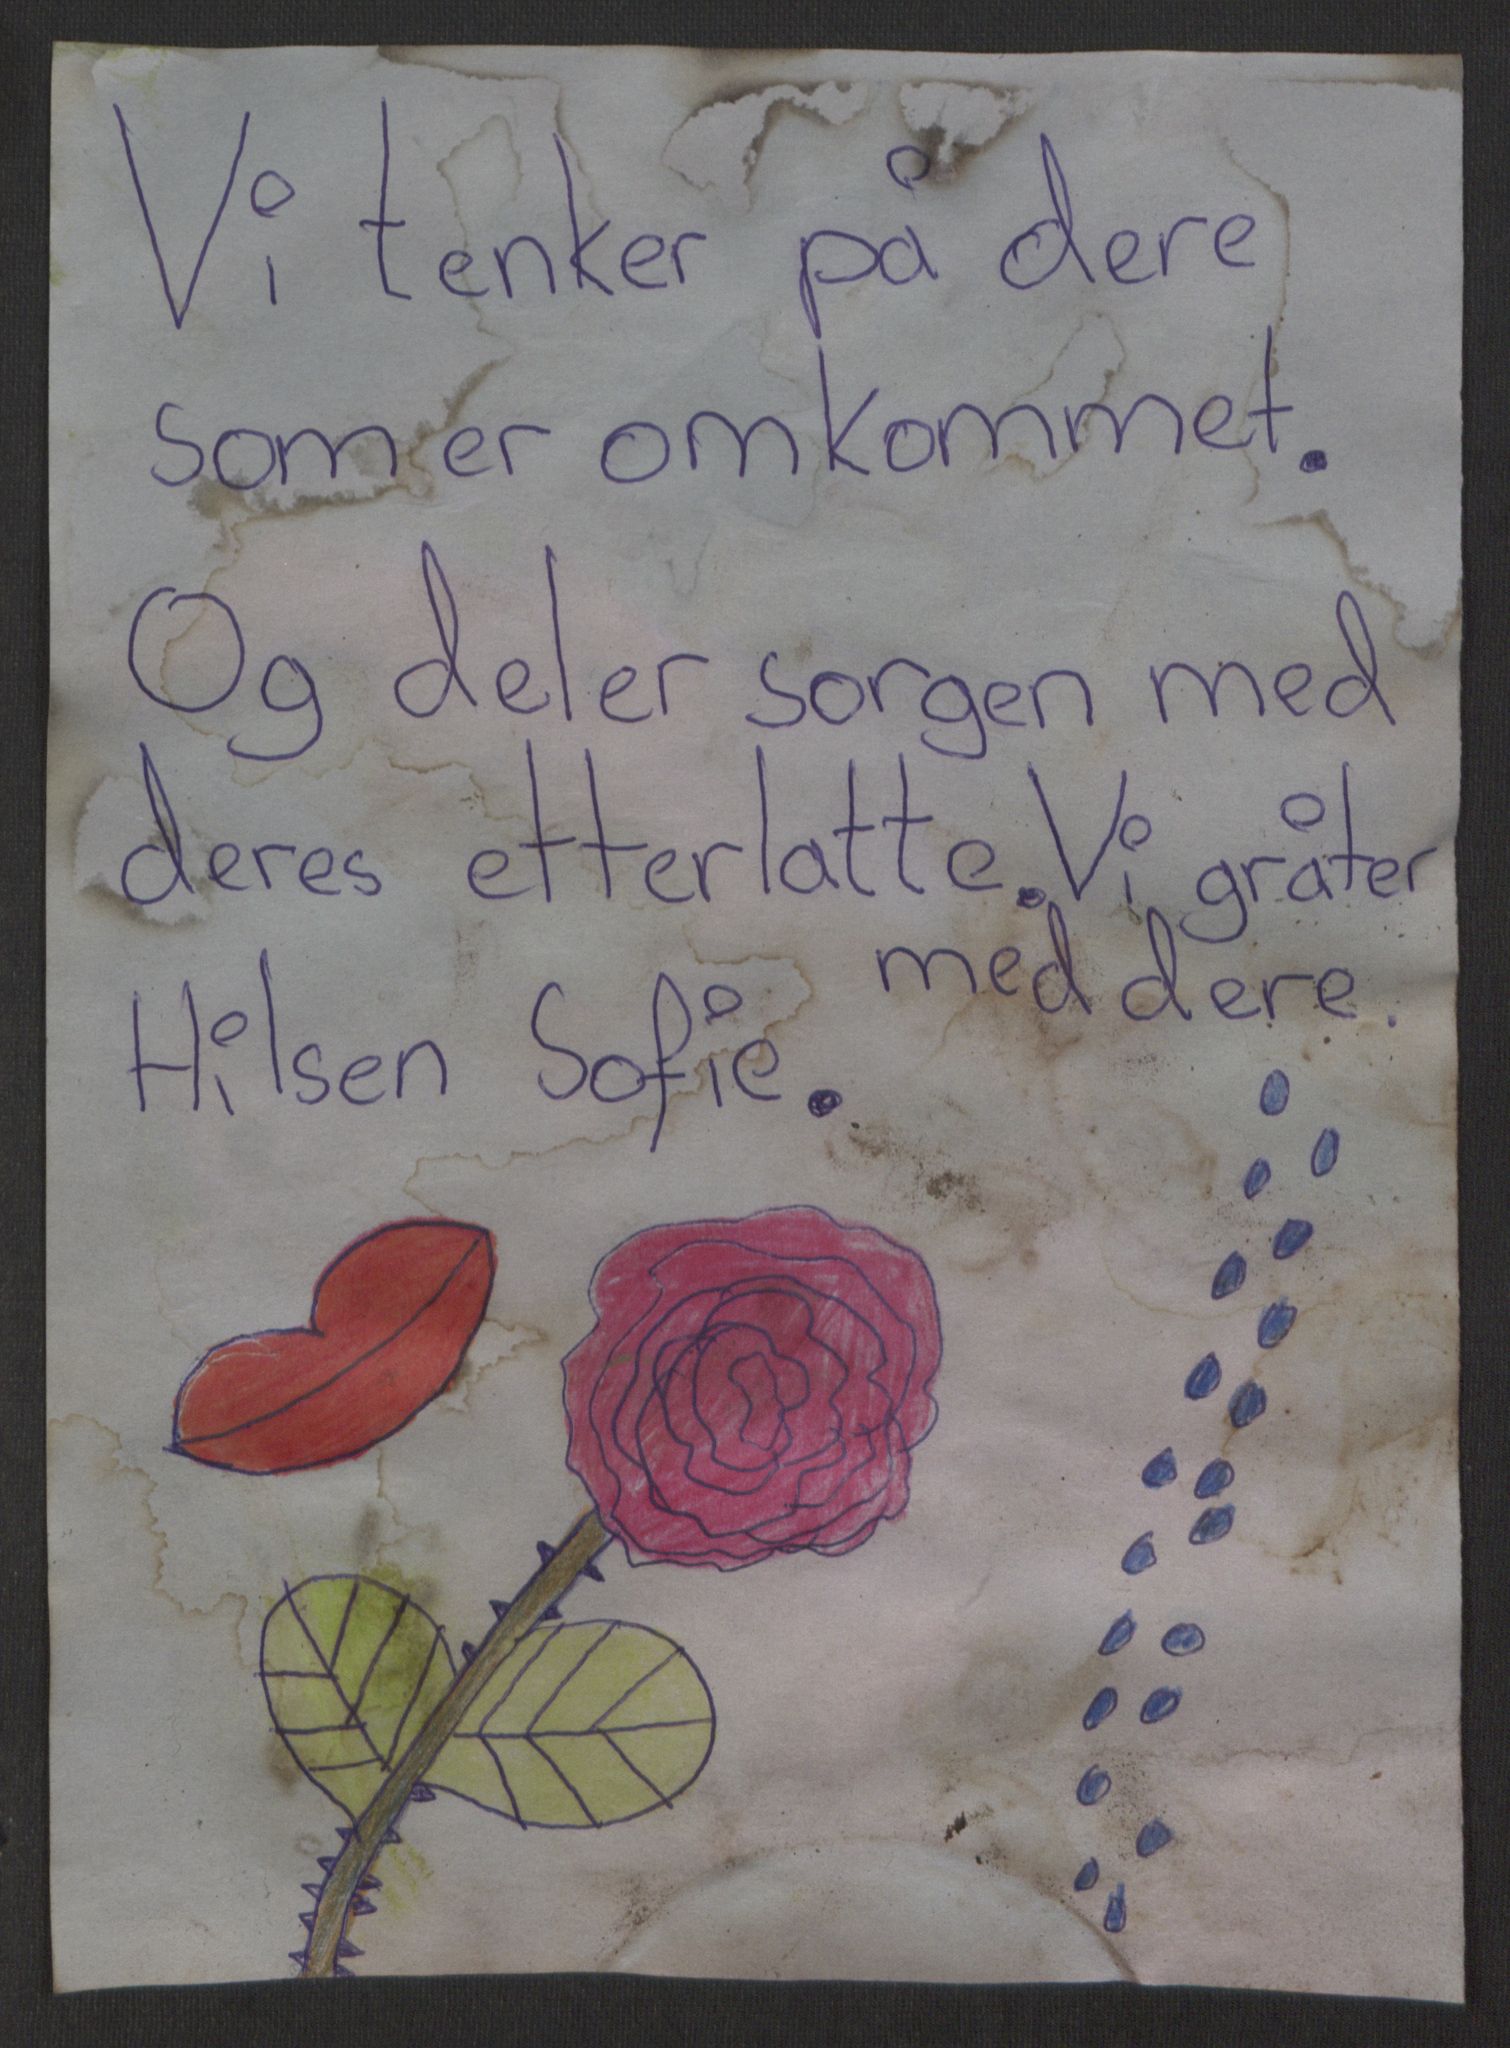 Vi tenker på dere
som er omkommet.
Og deler sorgen med
deres etterlatte. Vi gråter
med dere.
Hilsen Sofie.